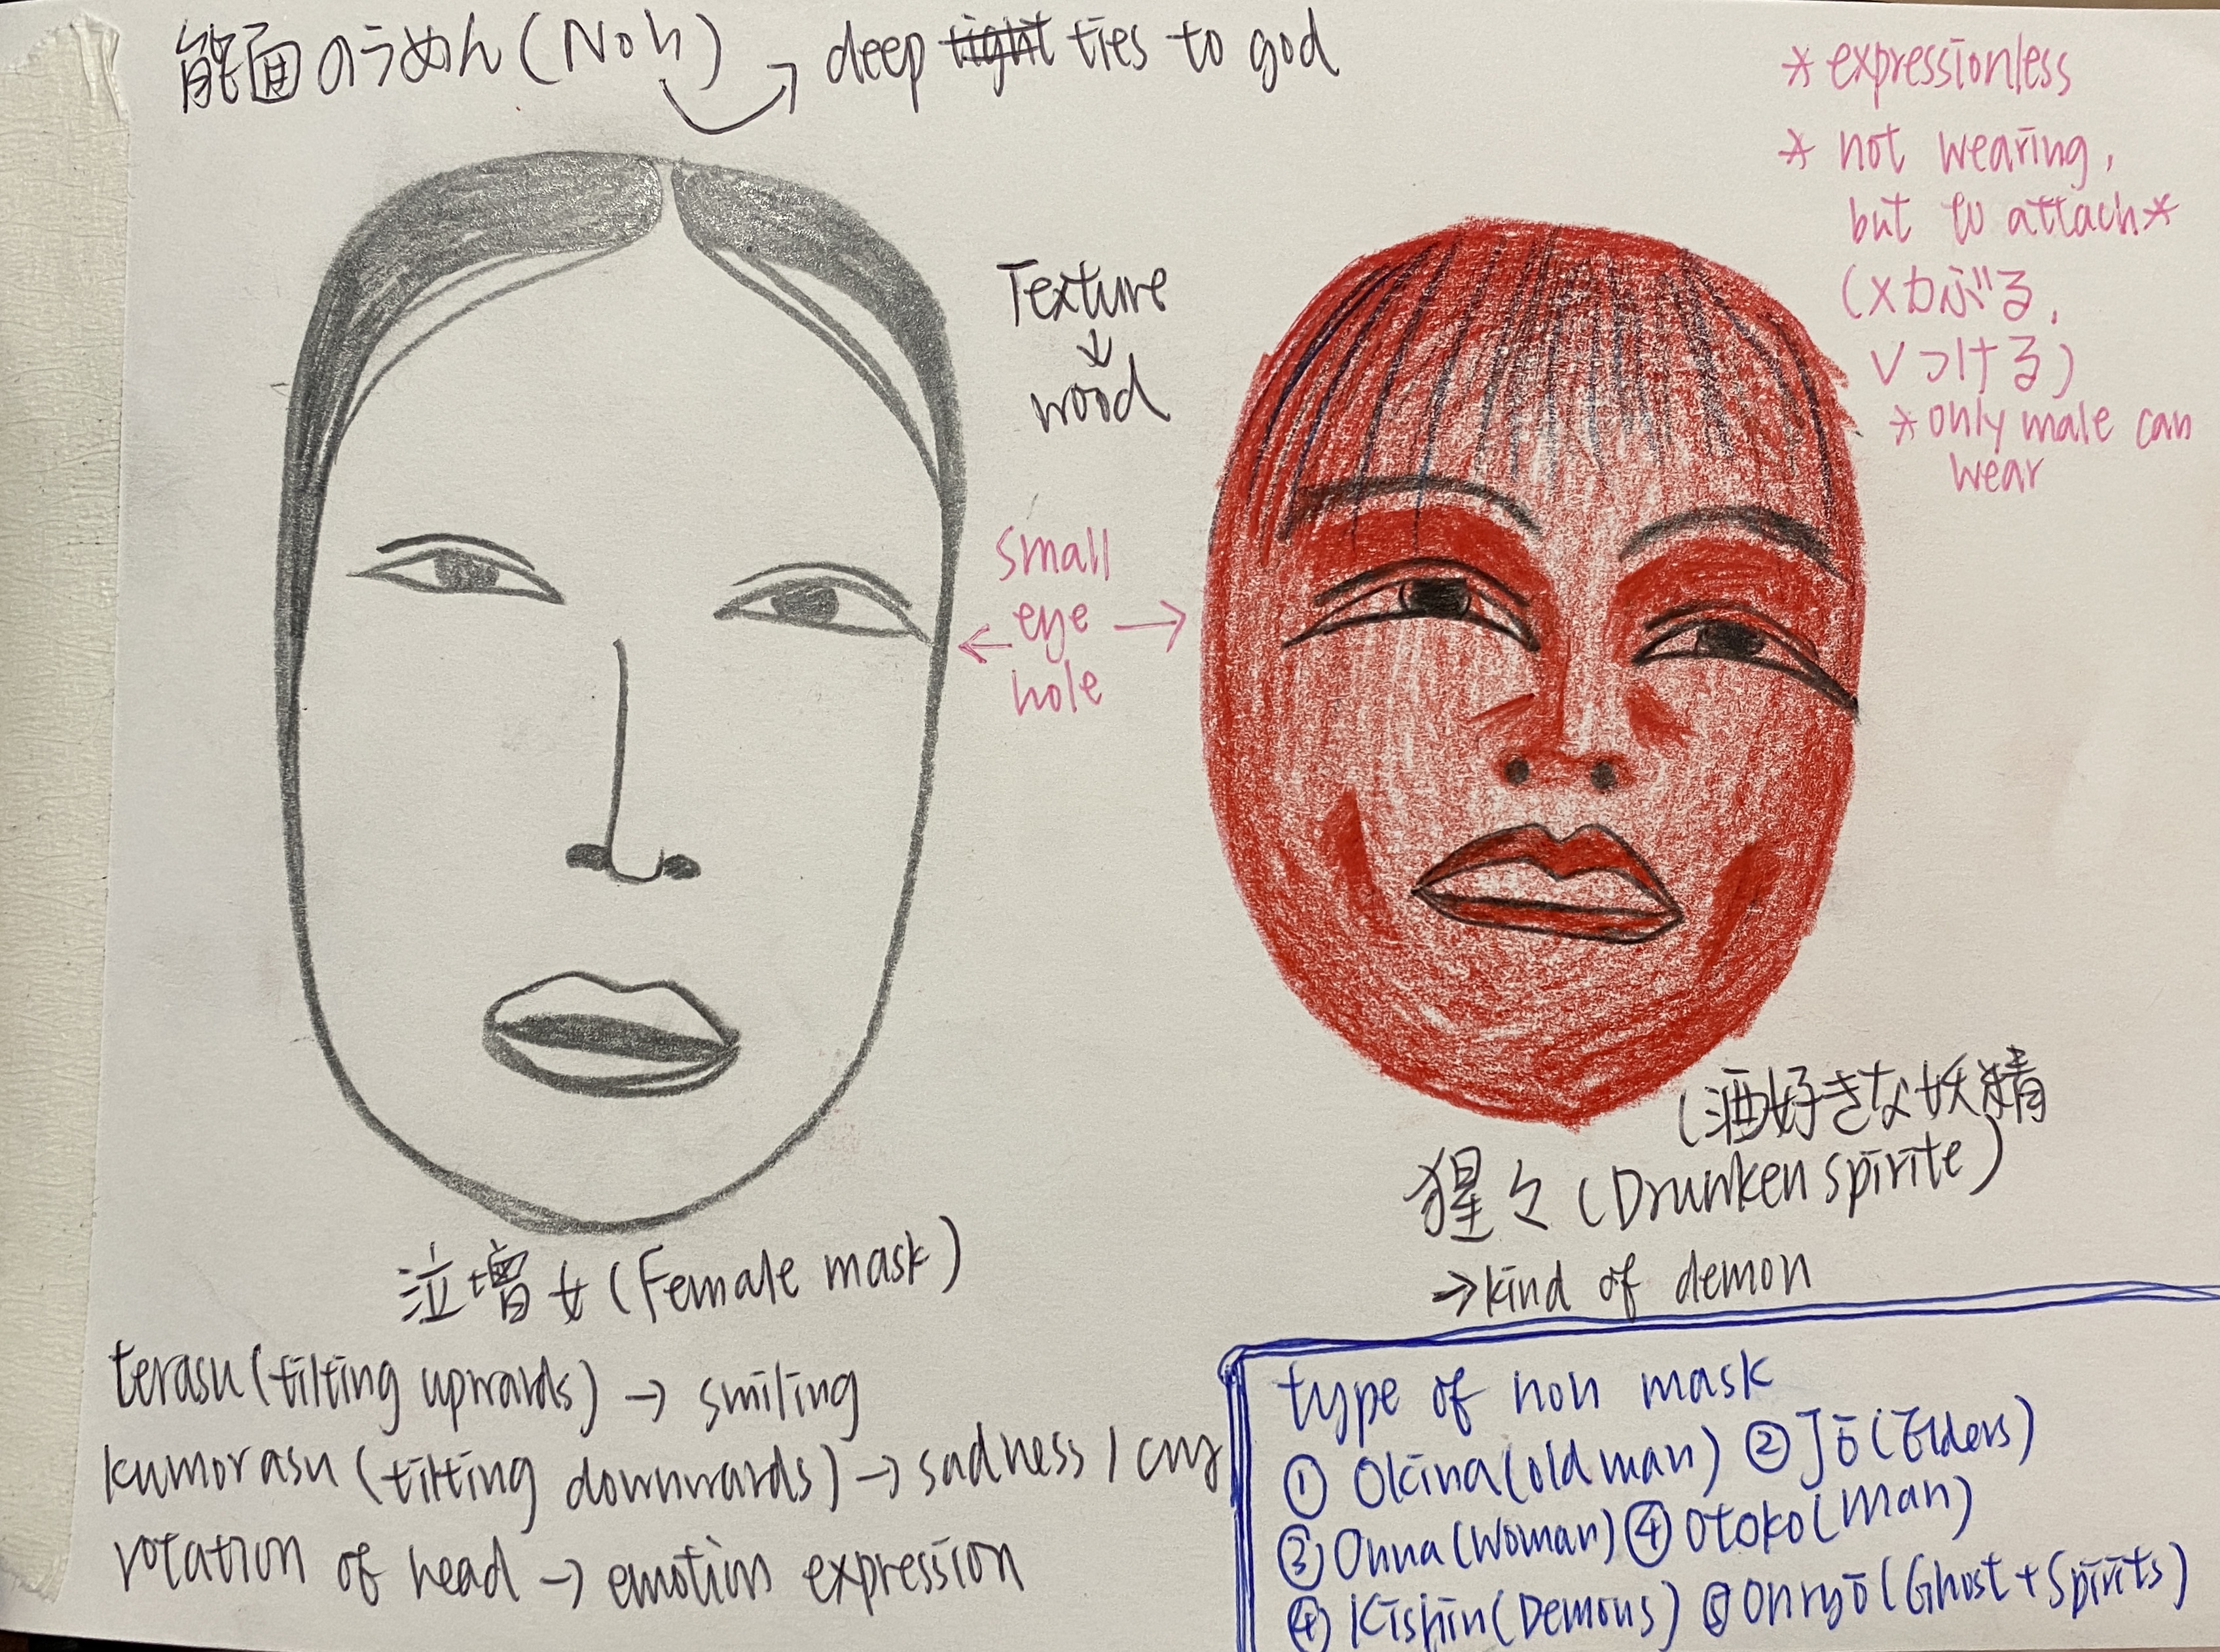 能面のうめん(Noh) → deep tight ties to god
* expressionless
* not wearing,
but to attach *
(×かぶる,
∨つける)
* only male can
wear
Texture
↓
wood
small
← eye →
hole
泣増女(Female mask)
(酒好きな妖精
猩々(Drunken spirite)
→kind of demon
terasu(tilting upwards) → smiling
kumorasu(tilting downwards) → sadness / cry
rotation of head → emotion expression
type of noh mask
① Okina(old man) ② Jō(Elders)
③ Onna(Woman) ④ Otoko(Man)
④ Kishin(Demons) ⑤ Onryō(Ghost+Spirits)